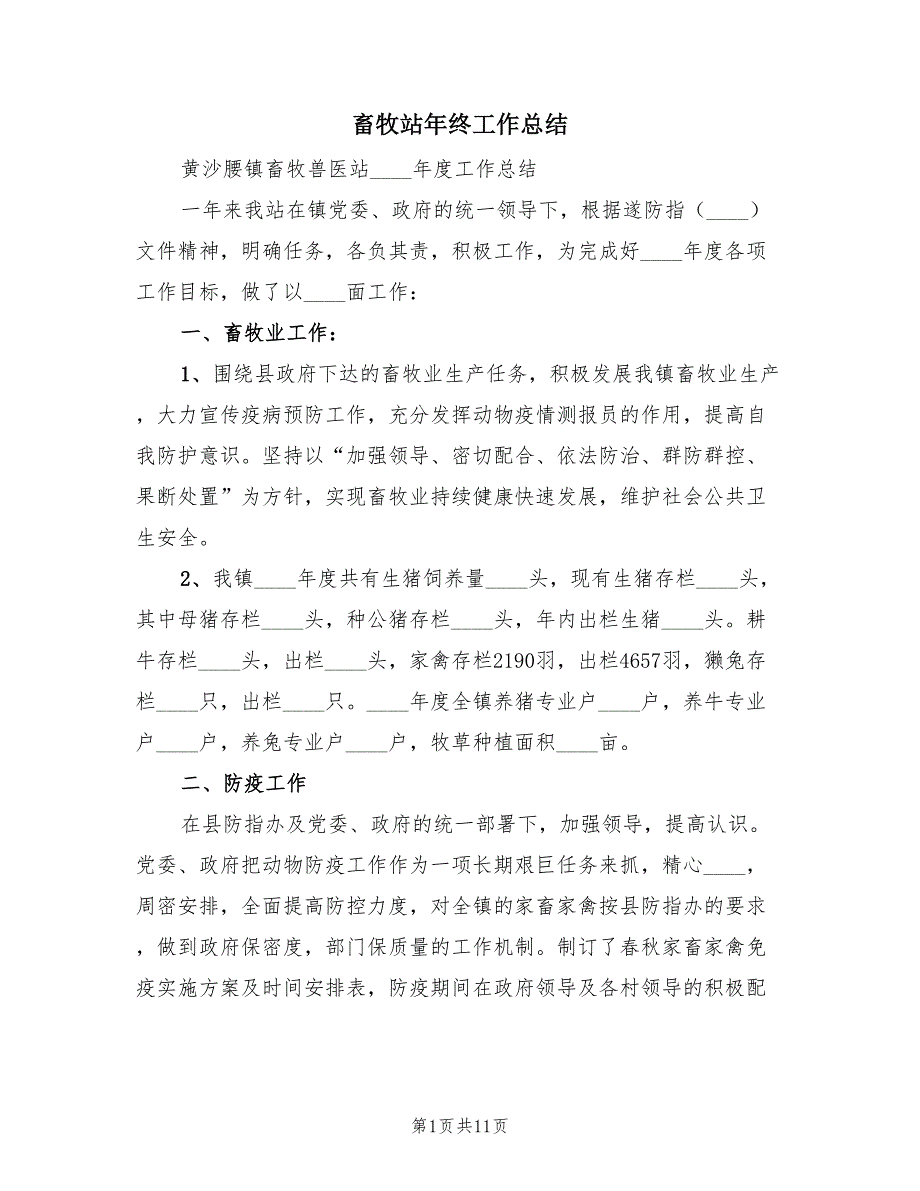 畜牧站年终工作总结
黄沙腰镇畜牧兽医站____年度工作总结
一年来我站在镇党委、政府的统一领导下，根据遂防指（____）
文件精神，明确任务，各负其责，积极工作，为完成好____年度各项
工作目标，做了以____面工作：
一、畜牧业工作：
1、围绕县政府下达的畜牧业生产任务，积极发展我镇畜牧业生产
，大力宣传疫病预防工作，充分发挥动物疫情测报员的作用，提高自
我防护意识。坚持以“加强领导、密切配合、依法防治、群防群控、
果断处置”为方针，实现畜牧业持续健康快速发展，维护社会公共卫
生安全。
2、我镇____年度共有生猪饲养量____头，现有生猪存栏____头，
其中母猪存栏____头，种公猪存栏____头，年内出栏生猪____头。耕
牛存栏____头，出栏____头，家禽存栏2190羽，出栏4657羽，獭兔存
栏____只，出栏____只。____年度全镇养猪专业户____户，养牛专业
户____户，养兔专业户____户，牧草种植面积____亩。
二、防疫工作
在县防指办及党委、政府的统一部署下，加强领导，提高认识。
党委、政府把动物防疫工作作为一项长期艰巨任务来抓，精心____，
周密安排，全面提高防控力度，对全镇的家畜家禽按县防指办的要求
，做到政府保密度，部门保质量的工作机制。制订了春秋家畜家禽免
疫实施方案及时间安排表，防疫期间在政府领导及各村领导的积极配
第1页共11页